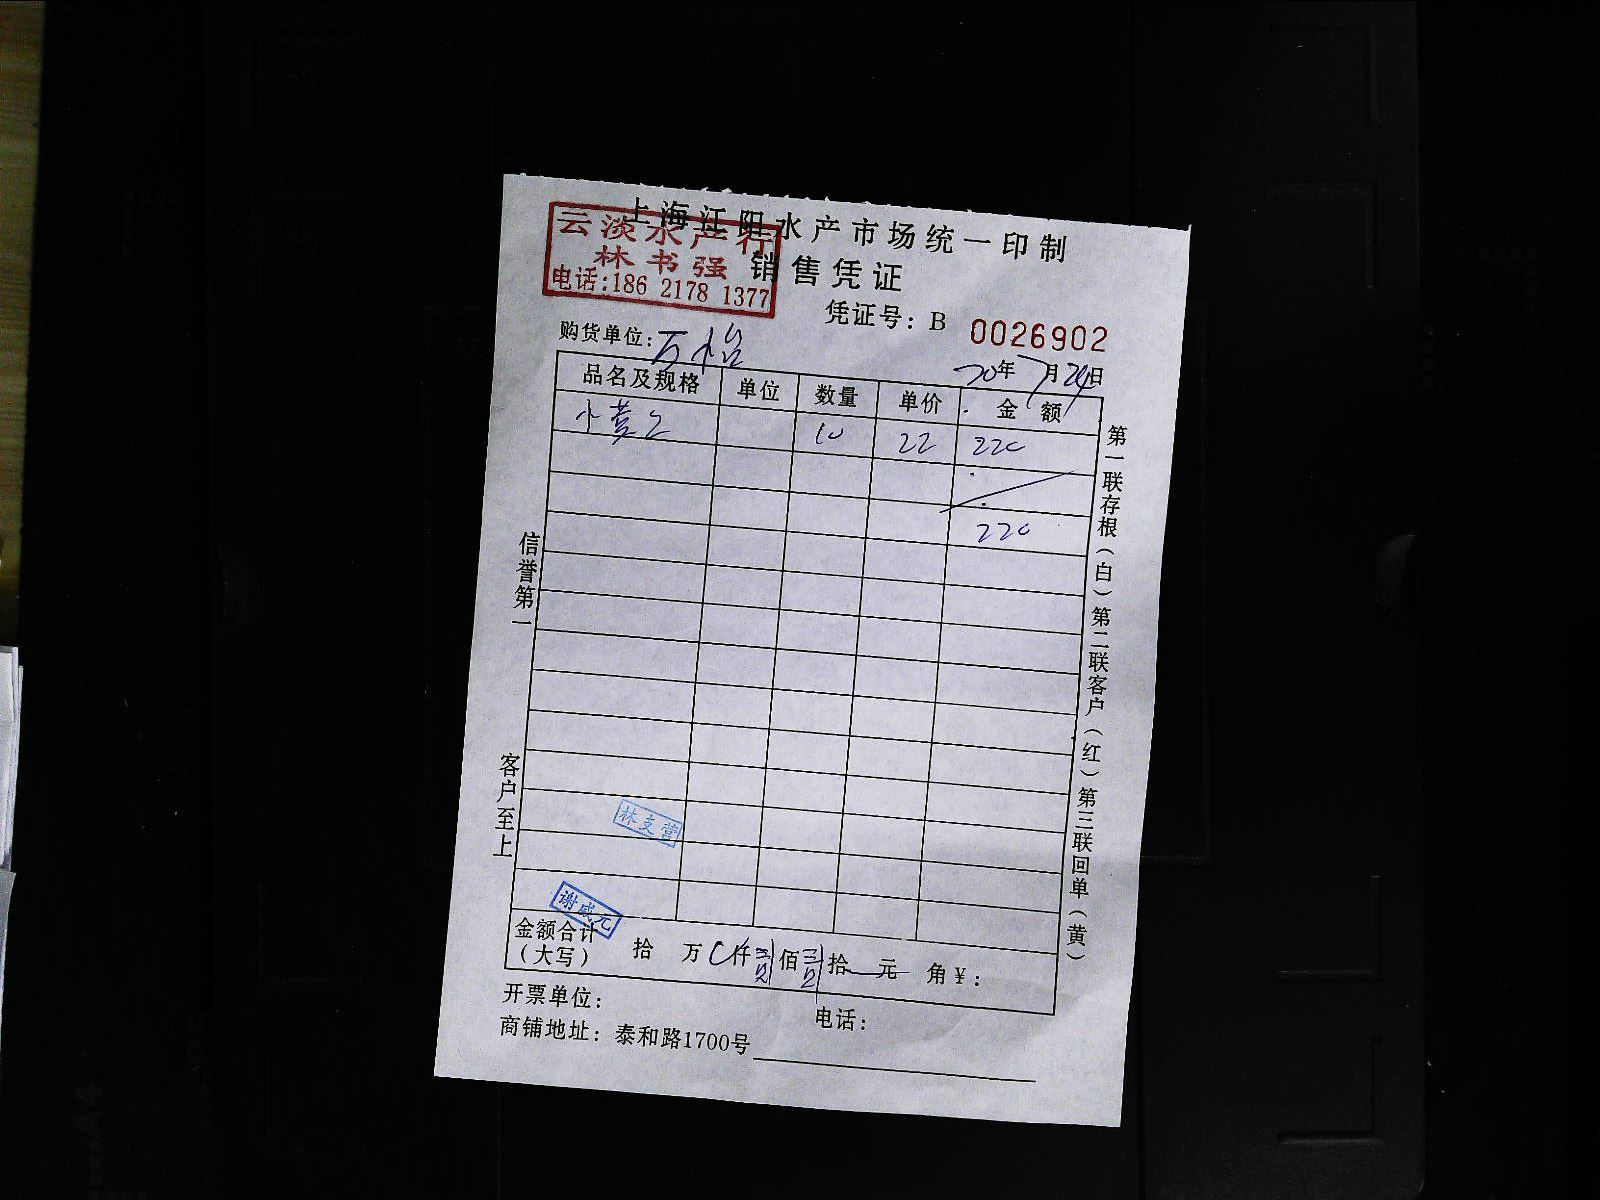 上海江阳水产市场统一印制
云淡水产行
林书强
电话:186 2178 1377
销售凭证
凭证号: B 0026902
购货单位: 万怡
20年7月24日
品名及规格 单位 数量 单价 金额
小黄 10 22 220
220
信誉第一
客户至上
第一联存根(白)第二联客户(红)第三联回单(黄)
林支营
谢成元
金额合计
(大写) 拾 万 仟 佰 拾 元 角 ¥:
开票单位:
电话:
商铺地址: 泰和路1700号